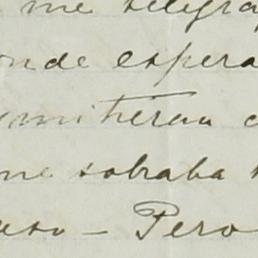 me telegra
onde espera
mitieran
me sobraba
uso - Pero